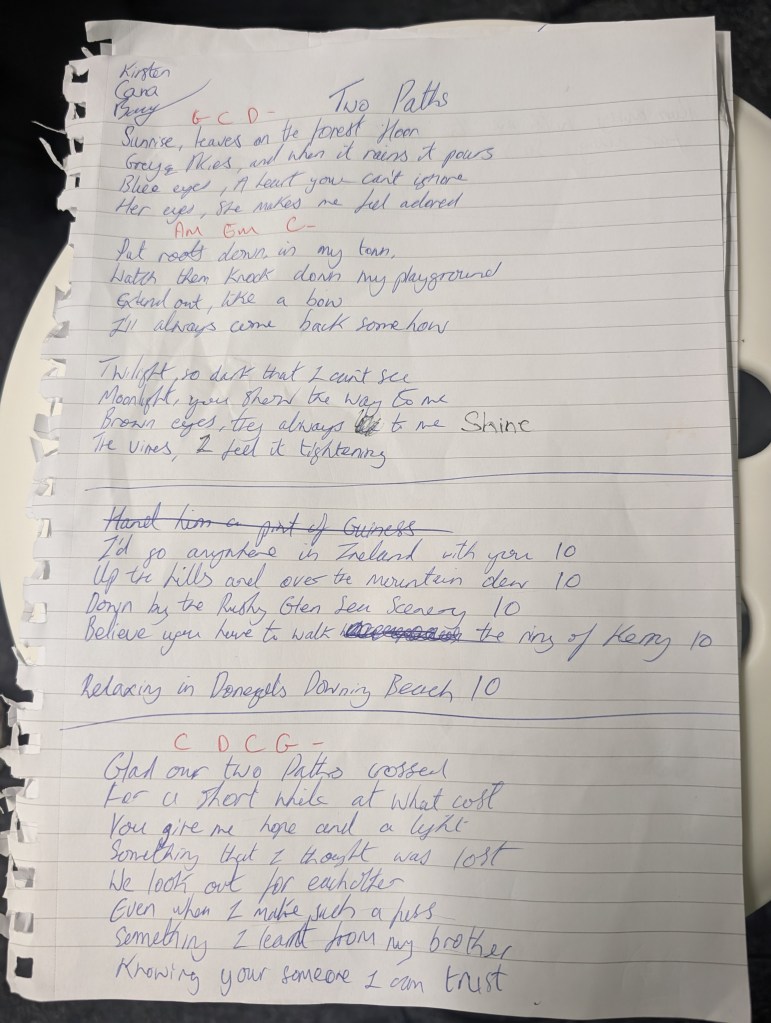 Kirsten
Cara
Barry
Two Paths
G C D -
Sunrise, leaves on the forest floor
Grey skies, and when it rains it pours
Blue eyes, A heart you can't ignore
Her eyes, she makes me feel adored
Am Em C -
Put roots down in my town,
Watch them knock down my playground
Extend out, like a bow
I'll always come back somehow
Twilight, so dark that I can't see
Moonlight, you show the way to me
Brown eyes, they always to me Shine
The vines, I feel it tightening
Hand him a pint of Guiness
I'd go anywhere in Ireland with you 10
Up the hills and over the mountain dew 10
Down by the Rushy Glen Sea Scenery 10
Believe you have to walk the ring of Kerry 10
Relaxing in Donegals Downing Beach 10
C D C G -
Glad our two Paths crossed
For a short while at what cost
You give me hope and a light
Something that I thought was lost
We look out for eachother
Even when I make such a fuss
Something I learnt from my brother
Knowing your someone I can trust